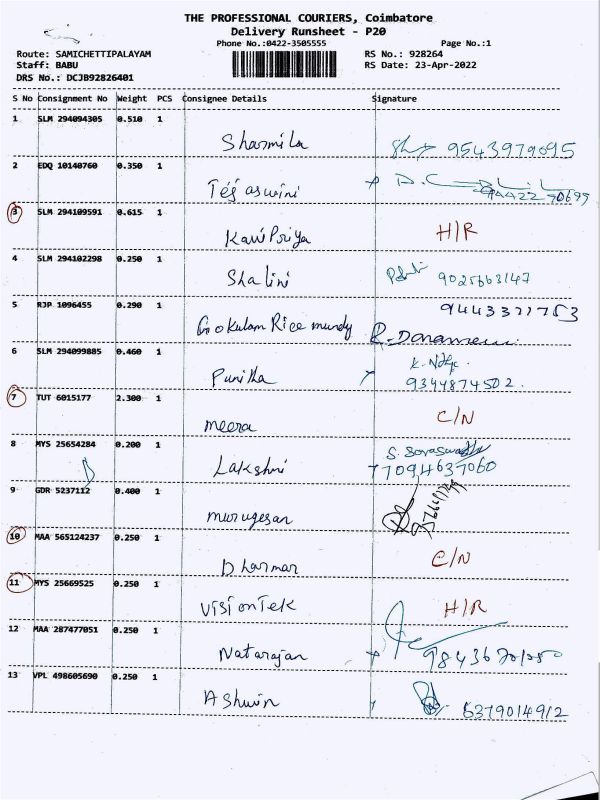 THE PROFESSIONAL COURIERS, Coimbatore
Delivery Runsheet - P20
Phone No.:0422-3505555 Page No.:1
Route: SAMICHETTIPALAYAM RS No.: 928264
Staff: BABU RS Date: 23-Apr-2022
DRS No.: DCJB92826401
S No Consignment No Weight PCS Consignee Details Signature
1 SLM 294094305 0.510 1
Sharmila 9543979095
2 EDQ 10140760 0.350 1
Tejaswini
3 SLM 294109591 0.615 1
KaviPriya H/R
4 SLM 294102298 0.250 1
Shalini 9025663147
5 RJP 1096455 0.290 1 9443377753
Gokulam Rice mundy
6 SLM 294099885 0.460 1
Punitha 9344874502.
7 TUT 6015177 2.300 1
meera C/N
8 MYS 25654284 0.200 1
Lakshmi 77094637060
9 GDR 5237112 0.400 1
murugesan
10 MAA 565124237 0.250 1
Dharmar C/N
11 MYS 25669525 0.250 1
VisionTek H/R
12 MAA 287477051 0.250 1
Natarajan
13 VPL 498605690 0.250 1
Ashwin 6379014912